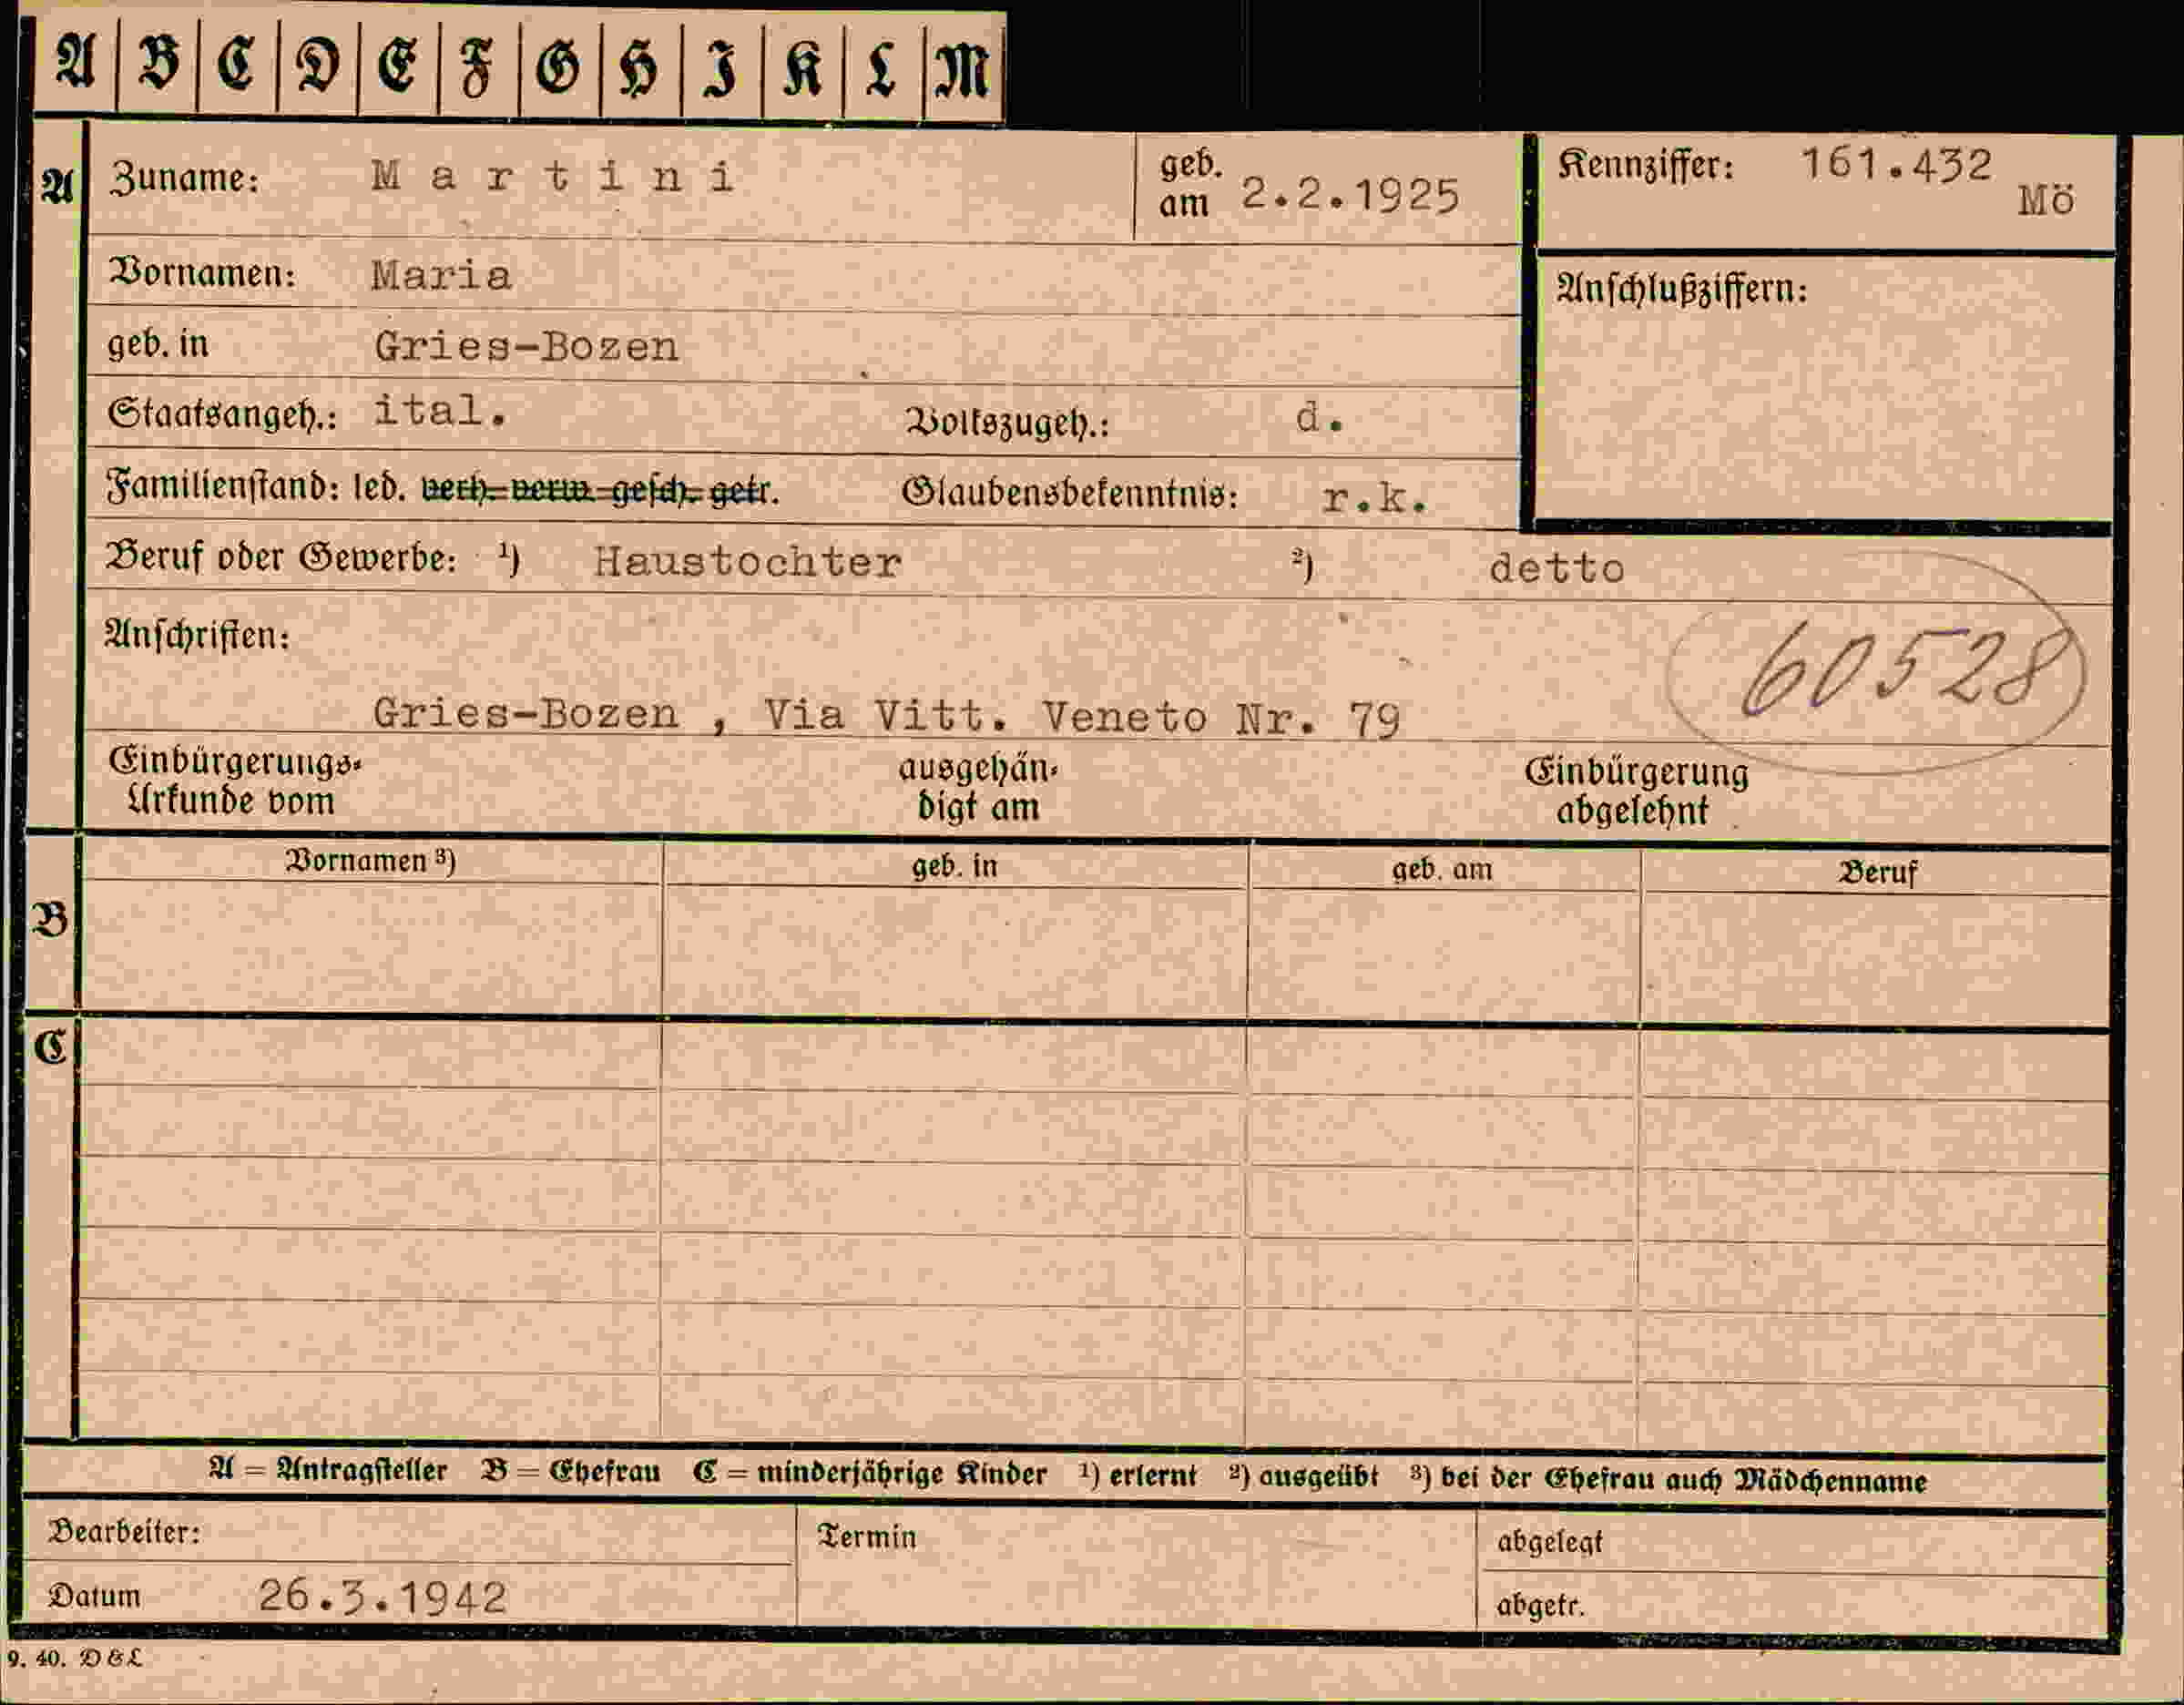 A B C D E F G H I K L M
A Zuname: Martini geb. am 2.2.1925 Kennziffer: 161.432 Mö
Vornamen: Maria Anschlußziffern:
geb. in Gries-Bozen
Staatsangeh.: ital. Volkszugeh.: d.
Familienstand: led. verh. verw. gesch. getr. Glaubensbekenntnis: r.k.
Beruf oder Gewerbe: ¹) Haustochter ²) detto
Anschriften: 60528
Gries-Bozen , Via Vitt. Veneto Nr. 79
Einbürgerungs- ausgehän- Einbürgerung
Urkunde vom digt am abgelehnt
Vornamen ³) geb. in geb. am Beruf
B
C
A = Antragsteller B = Ehefrau C = minderjährige Kinder ¹) erlernt ²) ausgeübt ³) bei der Ehefrau auch Mädchenname
Bearbeiter: Termin abgelegt
Datum 26.3.1942 abgetr.
9. 40. D & L